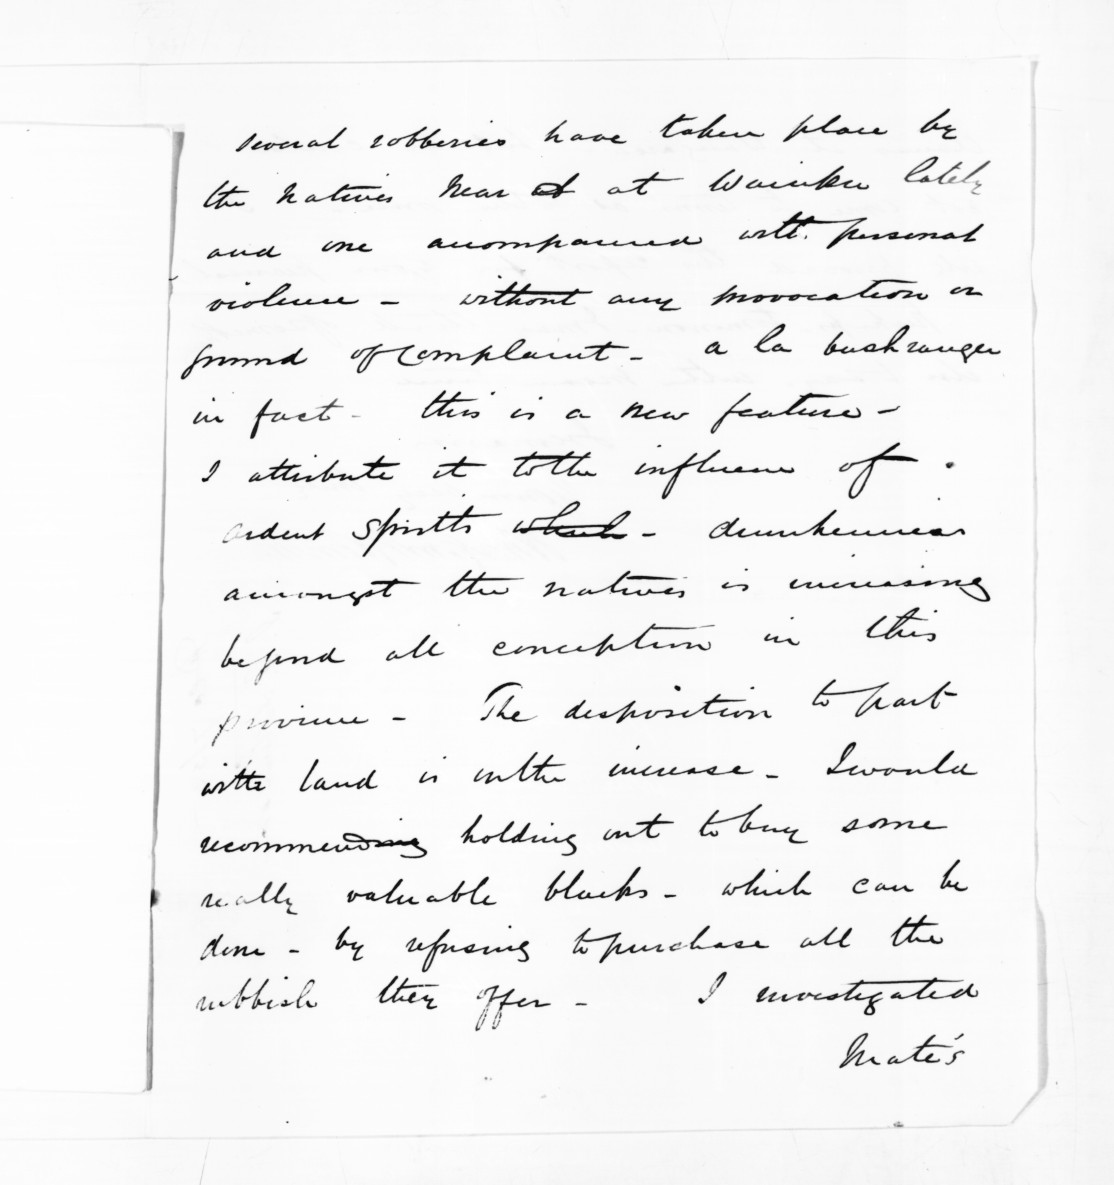 several robberies have taken place by
the Natives near at at Waiuku lately
and one accompanied with personal
violence - without any provocation or
ground of complaint - a la bushranger
in fact - this is a new feature -
I attribute it to the influence of
ardent spirits which - drunkenness
amongst the natives is increasing
beyond all conception in this
province - The disposition to part
with land is on the increase - I would
recommending holding out to buy some
really valuable blocks - which can be
done - by refusing to purchase all the
rubbish they offer - I investigated
Mate's